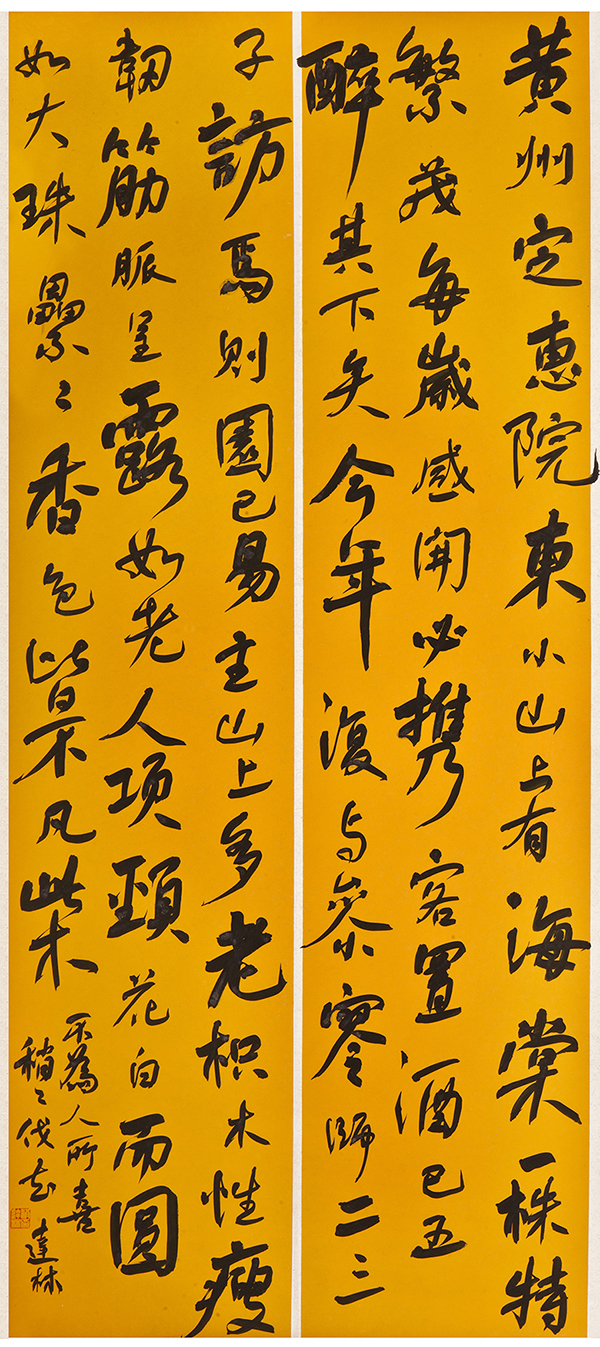 黄州定惠院東小山上有海棠一株特
繁茂每歲盛開必携客置酒已五
醉其下矣今年復與參寥師二三
子訪焉則園已易主山上多老枳木性瘦
韌筋脈呈露如老人项頸花白而圓
如大珠纍〻香色皆不凡此木
不為人所喜
稍〻伐去 達林